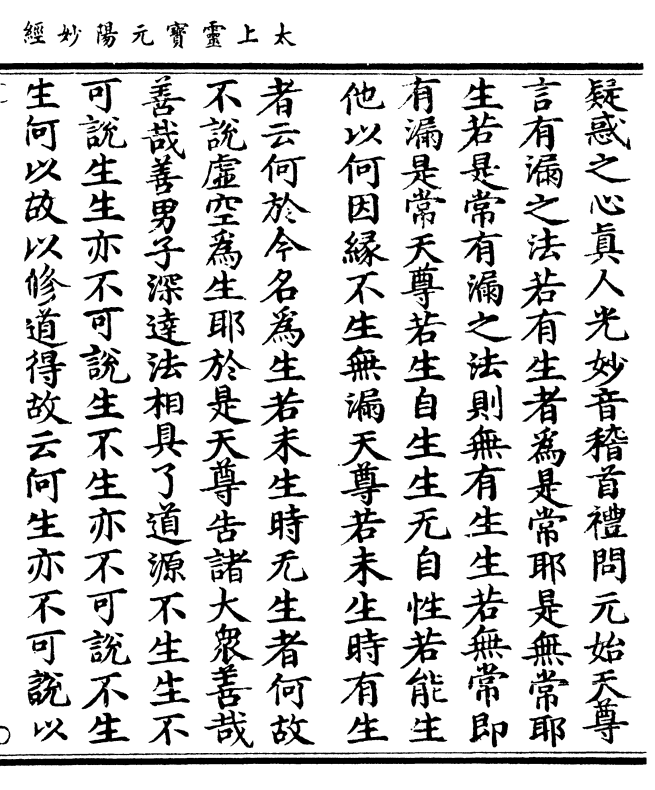 太上靈寶元陽妙經
疑惑之心眞人光妙音稽首禮問元始天尊
言有漏之法若有生者爲是常耶是無常耶
生若是常有漏之法則無有生生若無常即
有漏是常天尊若生自生生无自性若能生
他以何因緣不生無漏天尊若未生時有生
者云何於今名爲生若未生時无生者何故
不說虛空爲生耶於是天尊告諸大衆善哉
善哉善男子深達法相具了道源不生生不
可說生生亦不可說生不生亦不可說不生
生何以故以修道得故云何生亦不可說以